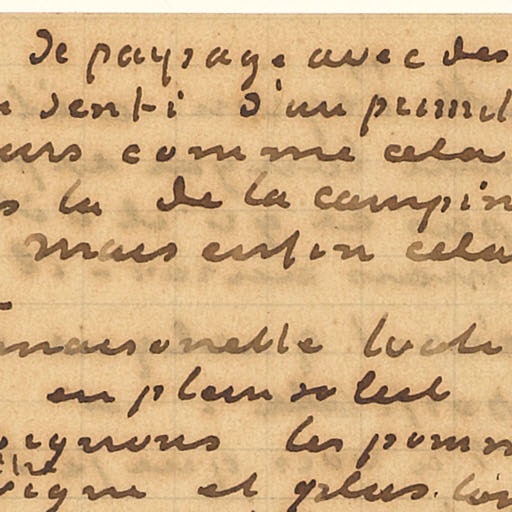 De paysage avec des
senti d'un primit
urs comme cela
s la de la campin
mais enfin cela
maisonette toute
en plein soleil
ignons les pomm
igne et plus loin